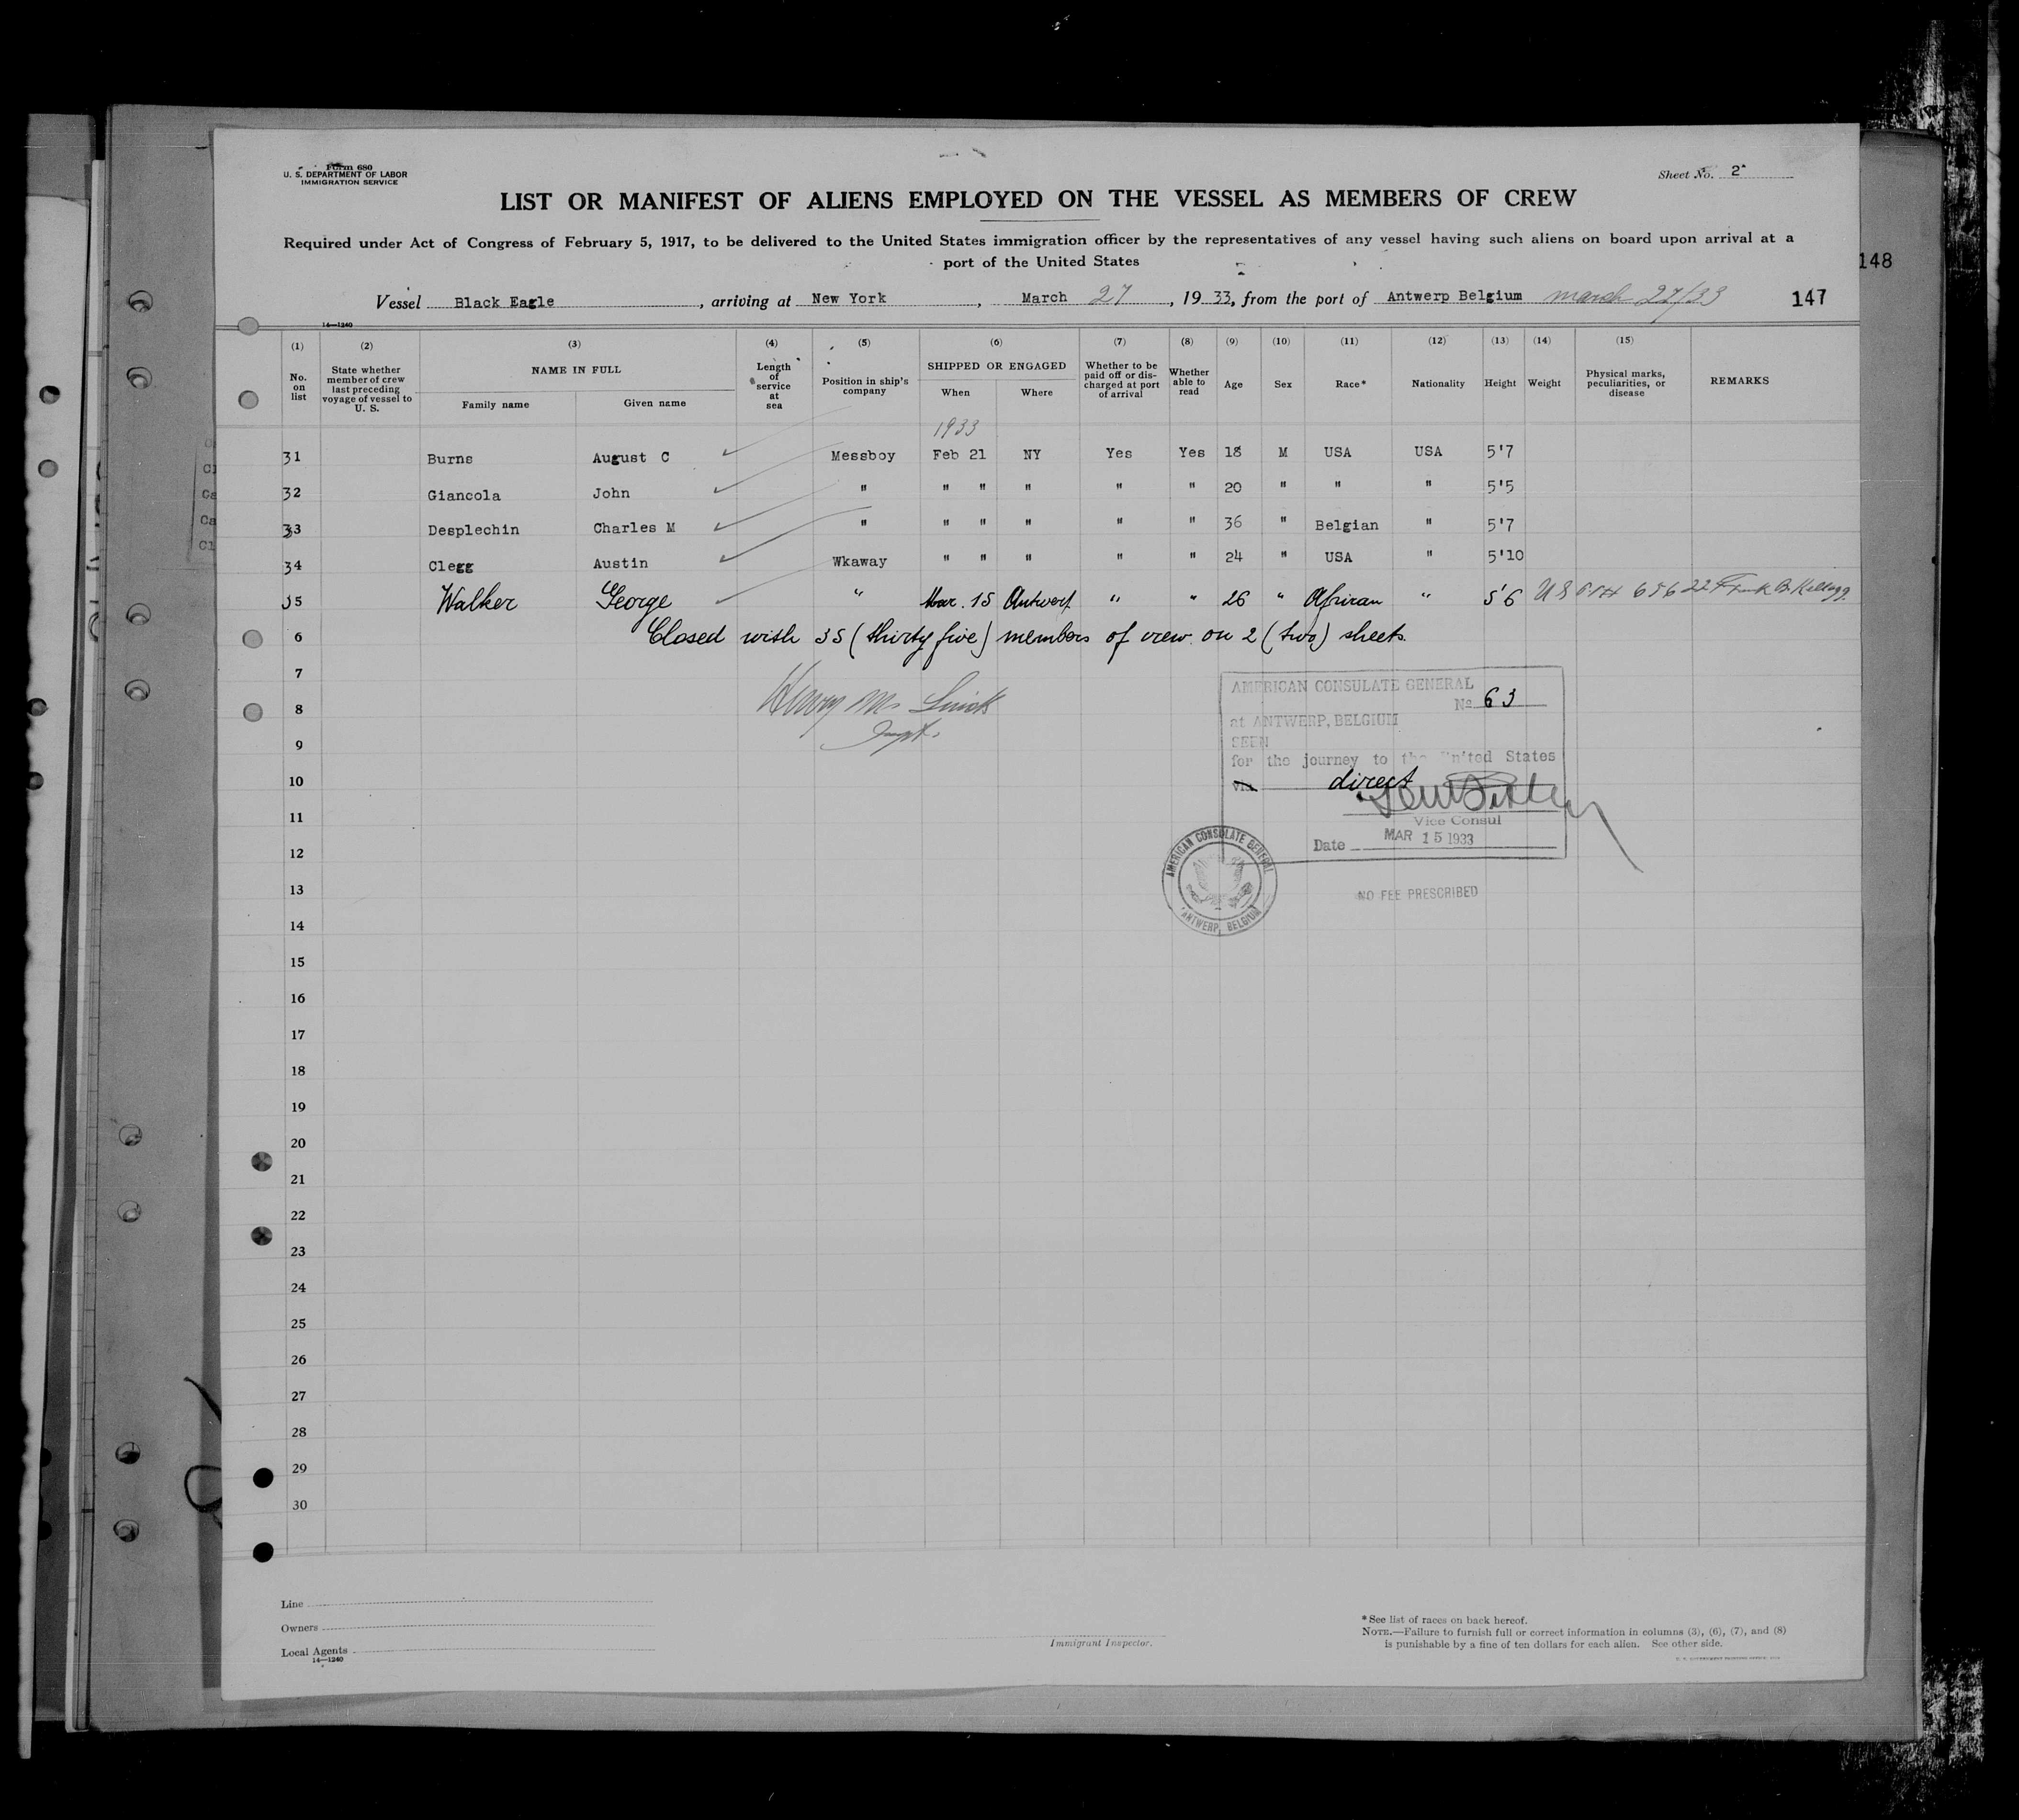 Form 680
U. S. DEPARTMENT OF LABOR
IMMIGRATION SERVICE
Sheet No. 2
LIST OR MANIFEST OF ALIENS EMPLOYED ON THE VESSEL AS MEMBERS OF CREW
Required under Act of Congress of February 5, 1917, to be delivered to the United States immigration officer by the representatives of any vessel having such aliens on board upon arrival at a
port of the United States
148
Vessel Black Eagle, arriving at New York, March 27, 1933, from the port of Antwerp Belgium march 27/33 147
14—1240
(1) (2) (3) (4) (5) (6) (7) (8) (9) (10) (11) (12) (13) (14) (15)
No. on list State whether member of crew last preceding voyage of vessel to U. S. NAME IN FULL Family name Given name Length of service at sea Position in ship's company SHIPPED OR ENGAGED When Where Whether to be paid off or discharged at port of arrival Whether able to read Age Sex Race* Nationality Height Weight Physical marks, peculiarities, or disease REMARKS
1933
31 Burns August C Messboy Feb 21 NY Yes Yes 18 M USA USA 5'7
32 Giancola John " " " " " " 20 " " " 5'5
33 Desplechin Charles M " " " " " " 36 " Belgian " 5'7
34 Clegg Austin Wkaway " " " " " 24 " USA " 5'10
35 Walker George " Mar. 15 Antwerp " " 26 " African " 5'6 US 65622 Frank B. Kellogg
6 Closed with 35 (thirty five) members of crew on 2 (two) sheets.
7
8 Henry
9
10
11
12
13
14
15
16
17
18
19
20
21
22
23
24
25
26
27
28
29
30
AMERICAN CONSULATE GENERAL
No 63
at ANTWERP, BELGIUM
SEEN
for the journey to the United States
via direct
Vice Consul
Date MAR 15 1933
AMERICAN CONSULATE GENERAL
ANTWERP, BELGIUM
NO FEE PRESCRIBED
Line
Owners
Local Agents
14—1240
Immigrant Inspector.
* See list of races on back hereof.
NOTE.—Failure to furnish full or correct information in columns (3), (6), (7), and (8)
is punishable by a fine of ten dollars for each alien. See other side.